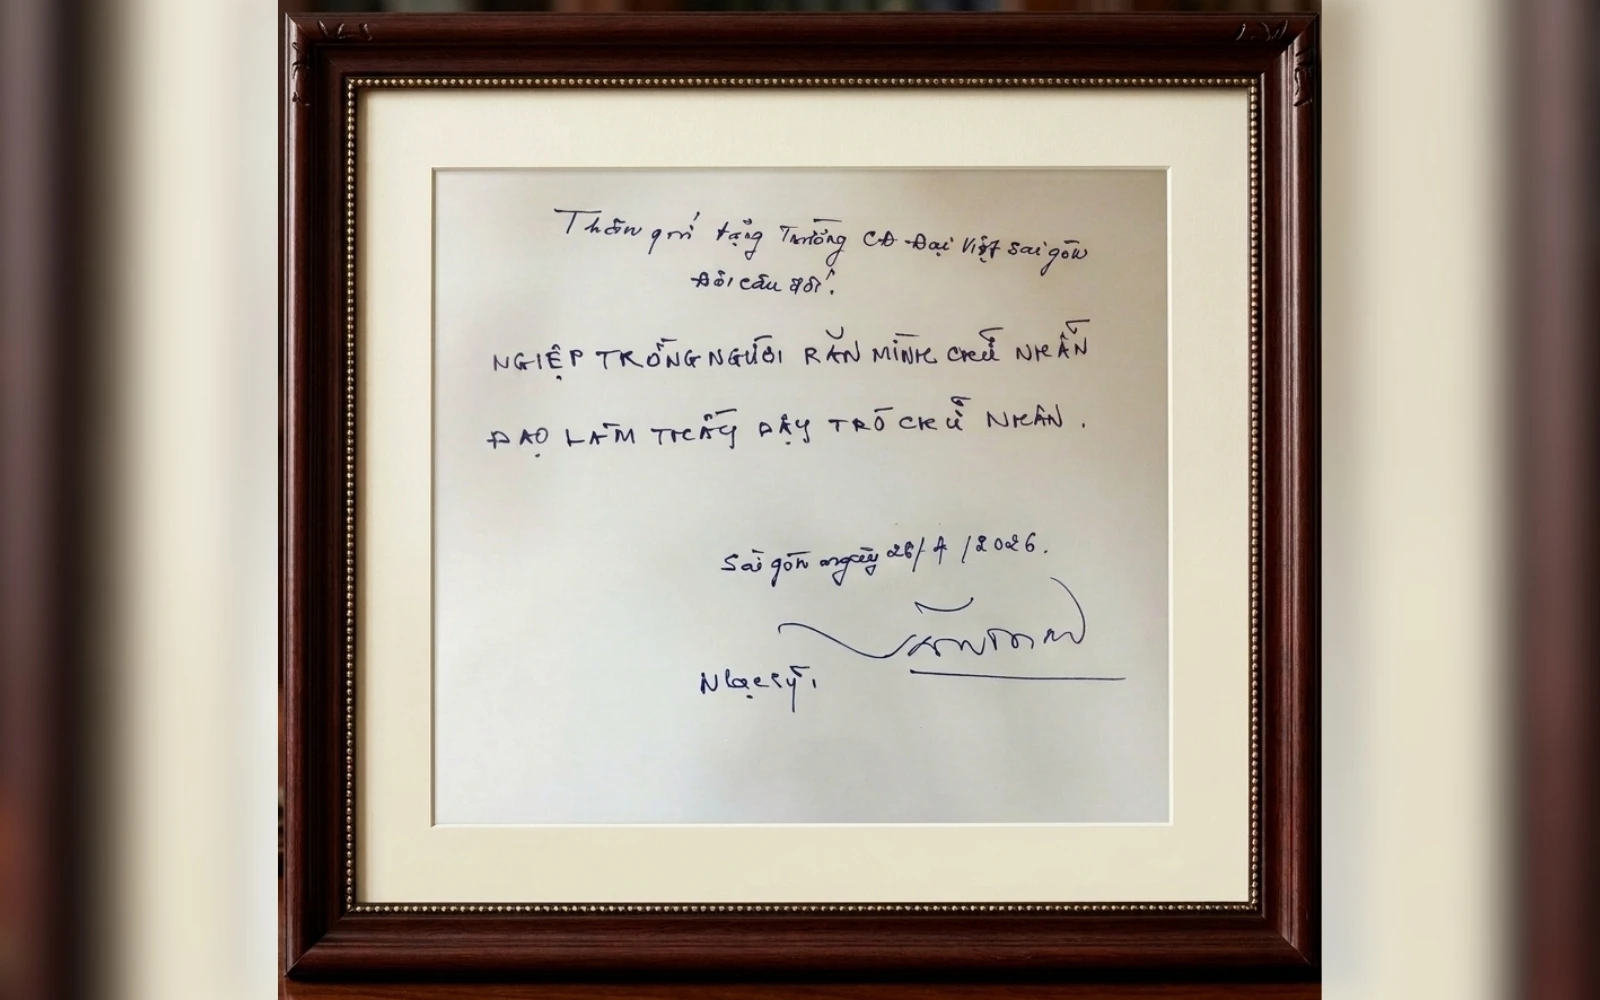 Thân quí tặng Trường CĐ Đại Việt Sài gòn
Đôi câu đối.
NGIỆP TRỒNG NGƯỜI RĂN MÌNH CHỮ NHẪN
ĐẠO LÀM THẦY DẠY TRÒ CHỮ NHÂN.
Sài gòn ngày 26/4/2026.
Nhạc sỹ,